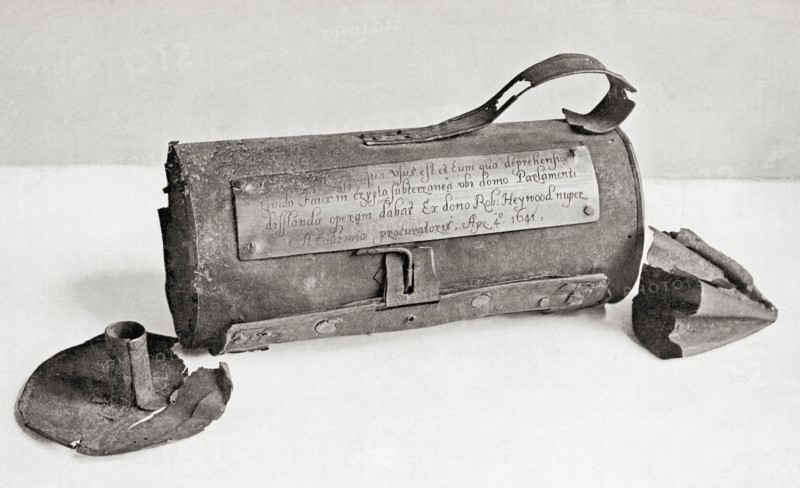 qua vsus est et cum qua deprehensus
Guido Faux in crypta subterranea vbi domo Parlamenti
difflandæ operam dabat Ex dono Rob: Heywood nuper
Academiæ procuratoris, Apr. 4º. 1641.
PHOTO12